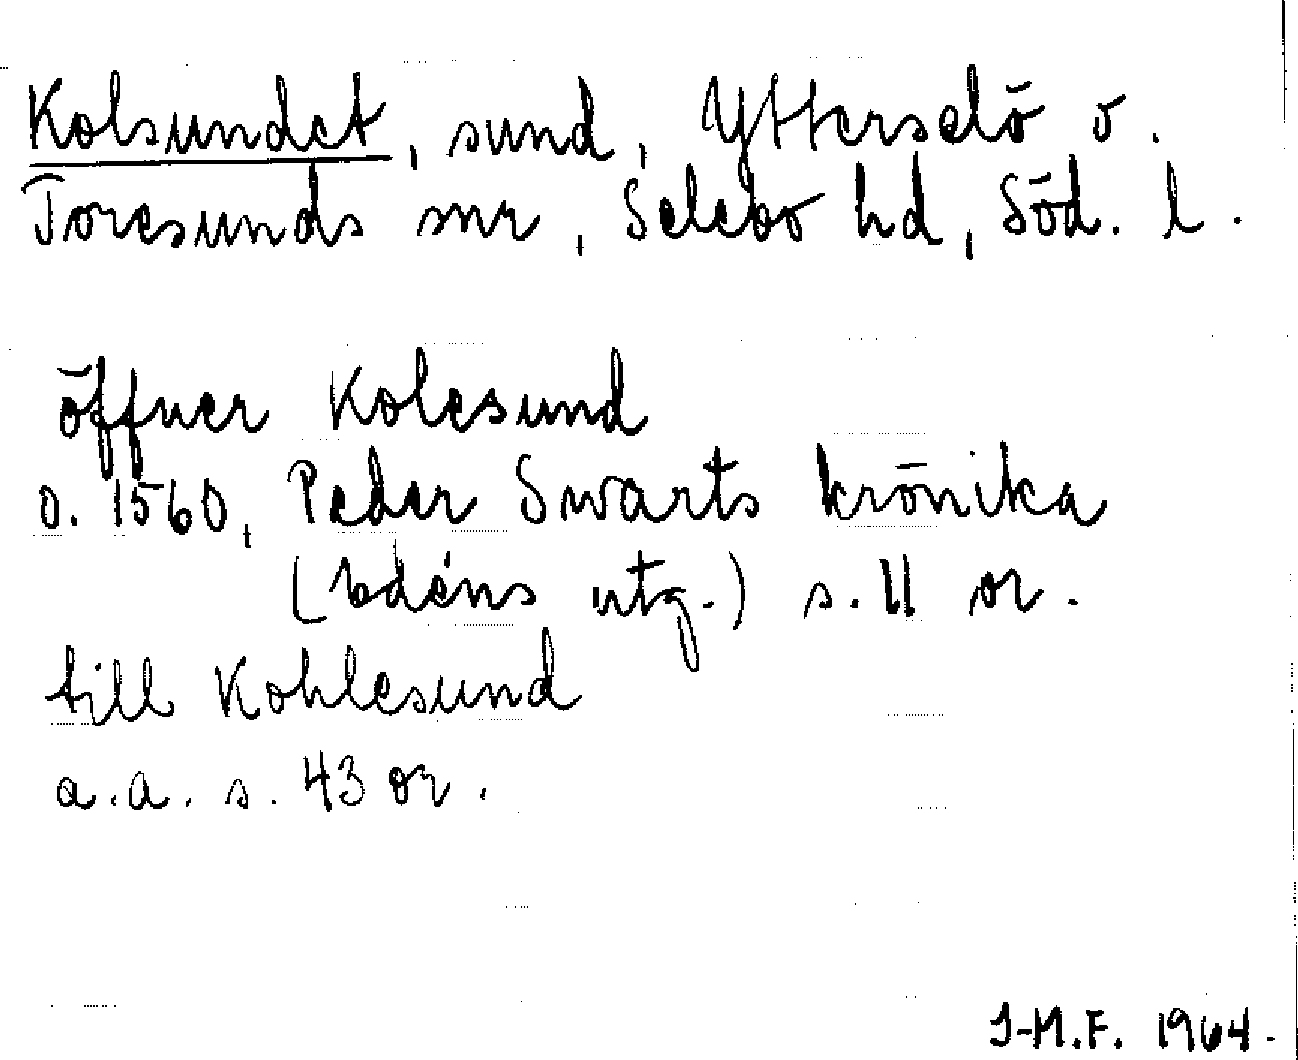 Kolsundet, sund, Ytterselö o.
Toresunds snr, Selebo hd, Söd. l.
öffuer Kolesund
o. 1560, Peder Swarts krönika
(Edéns utg.) s. 11 or.
till Kohlesund
a.a. s. 43 or.
I-M.F. 1964.